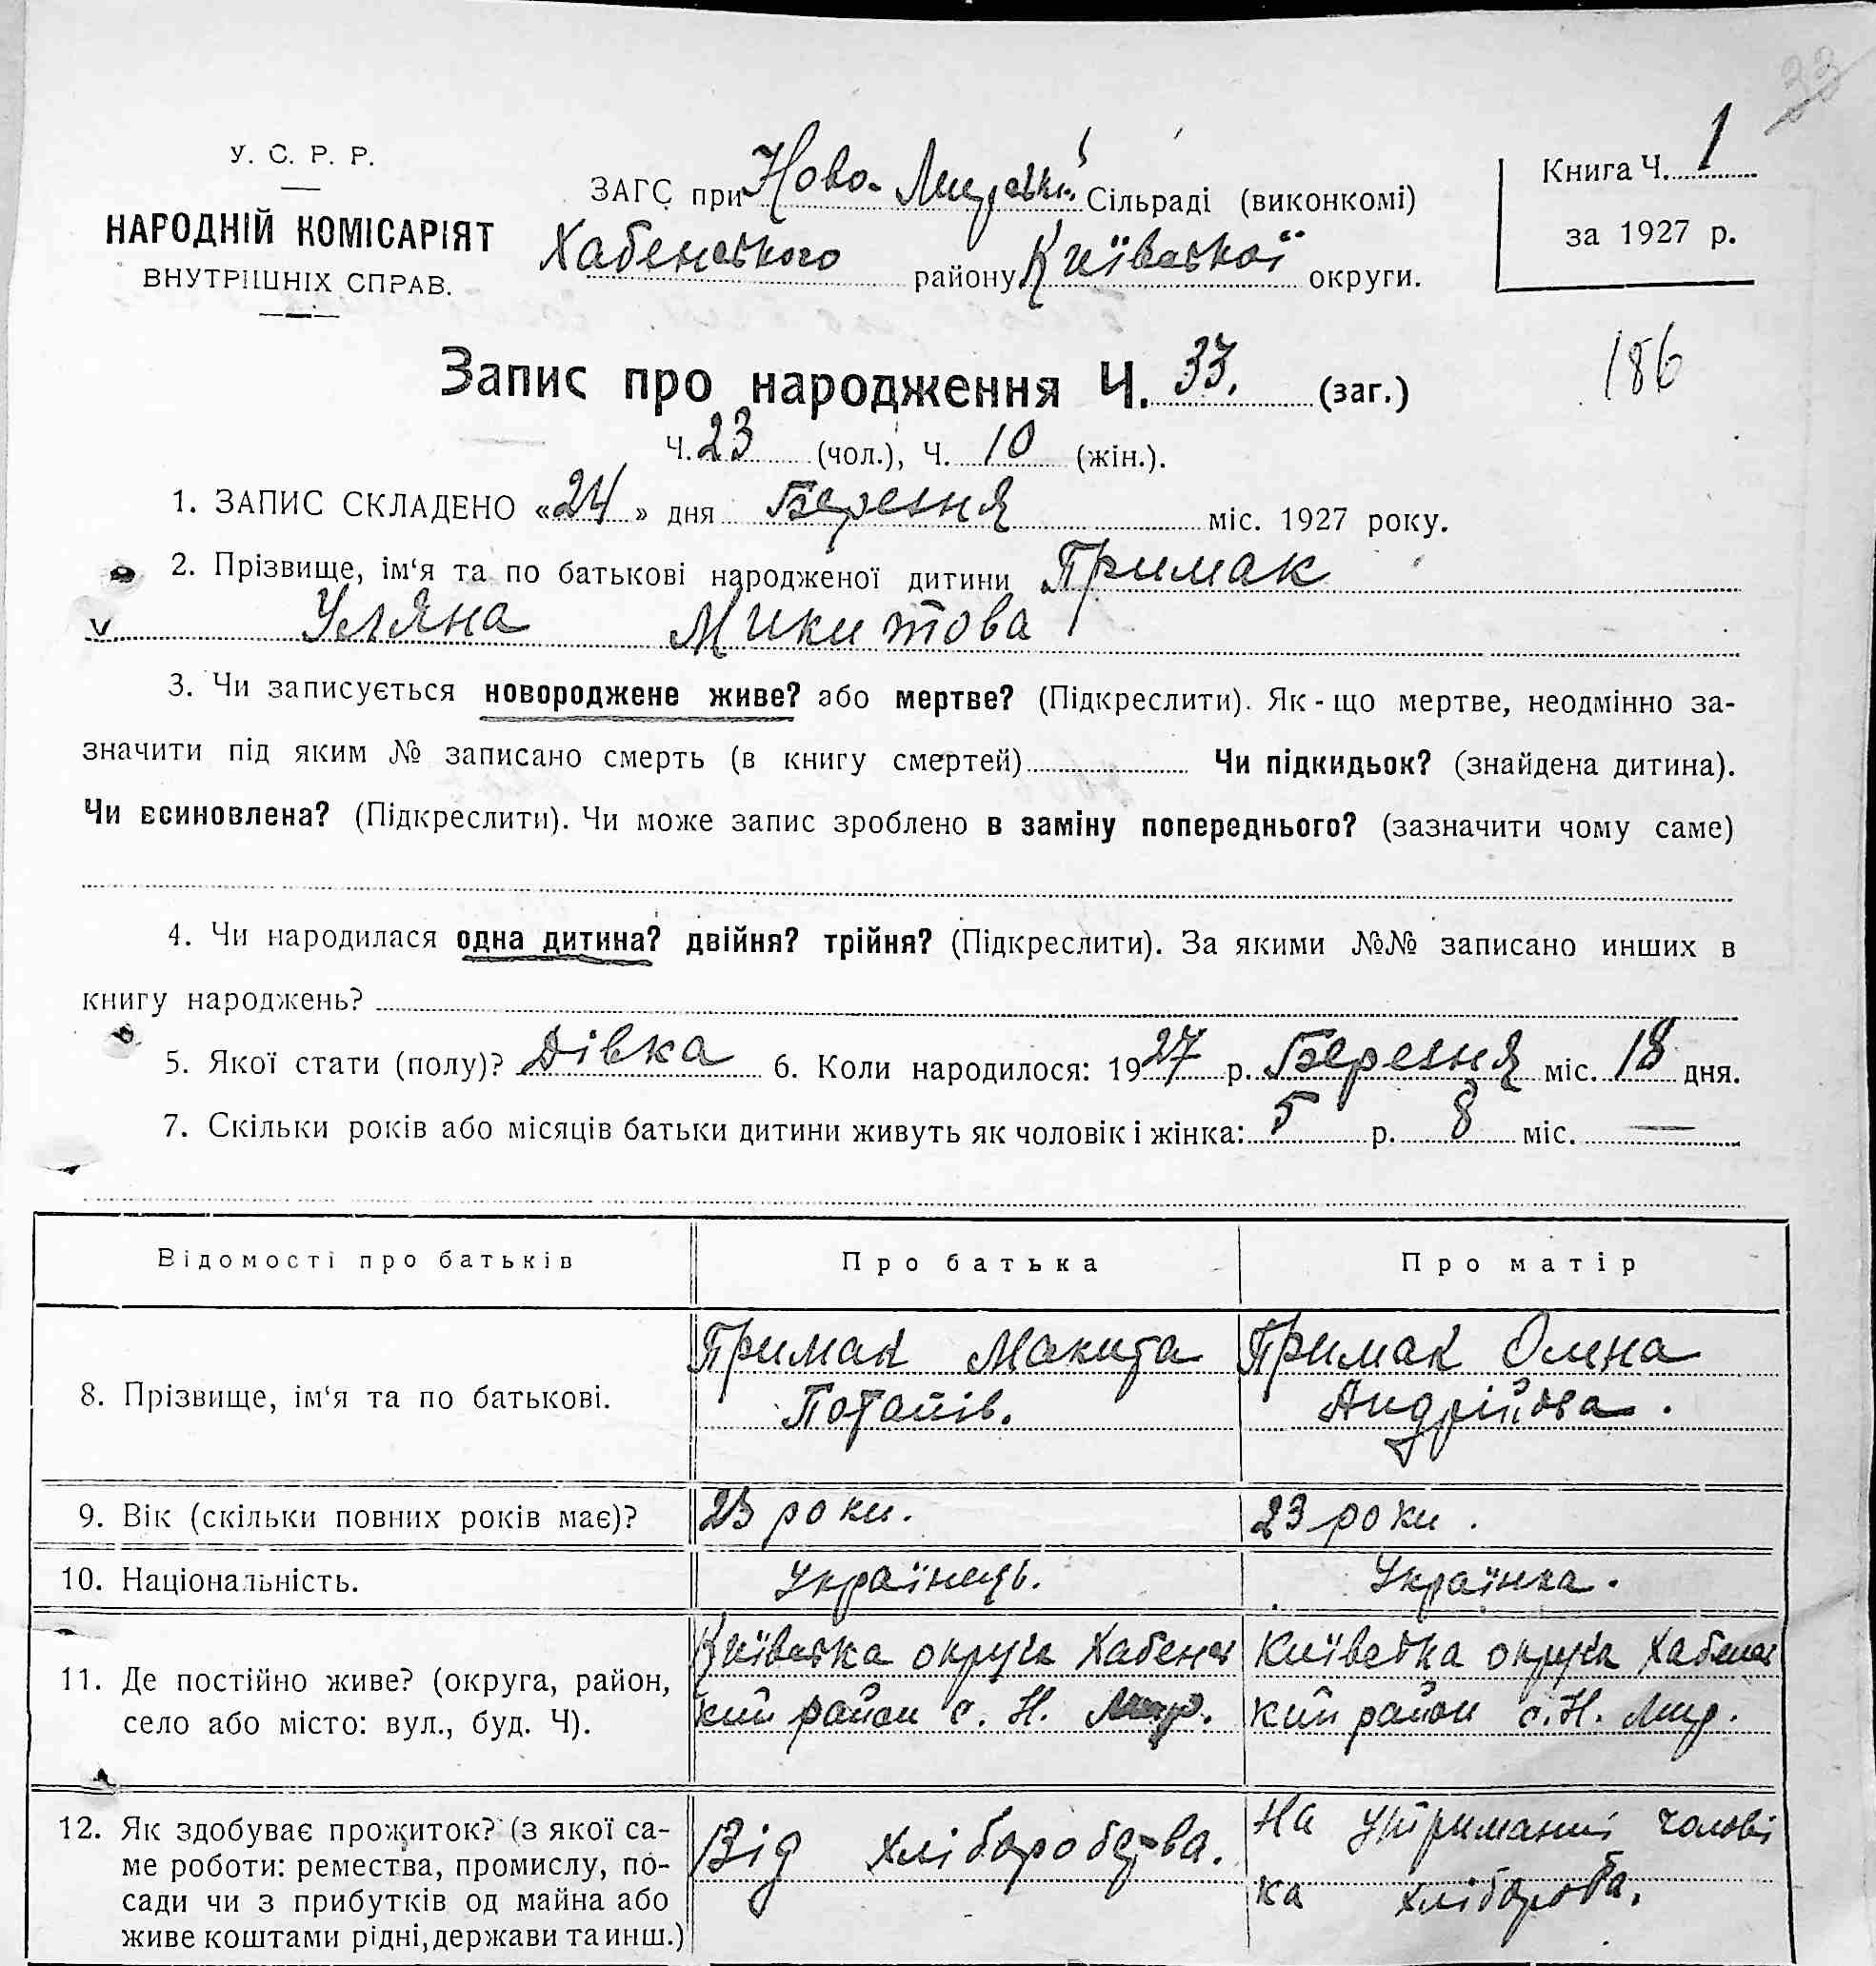 33
У. С. Р. Р.
НАРОДНІЙ КОМІСАРІЯТ
ВНУТРІШНІХ СПРАВ.
ЗАГС при Ново-Мирській Сільраді (виконкомі)
Хабенського району Київської округи.
Книга Ч. 1
за 1927 р.
186
Запис про народження Ч. 33. (заг.)
Ч. 23 (чол.), Ч. 10 (жін.).
1. ЗАПИС СКЛАДЕНО «24» дня Березня міс. 1927 року.
2. Прізвище, ім‘я та по батькові народженої дитини Примак
v Уляна Микитова
3. Чи записується новороджене живе? або мертве? (Підкреслити). Як-що мертве, неодмінно за-
значити під яким № записано смерть (в книгу смертей) Чи підкидьок? (знайдена дитина).
Чи всиновлена? (Підкреслити). Чи може запис зроблено в заміну попереднього? (зазначити чому саме)
4. Чи народилася одна дитина? двійня? трійня? (Підкреслити). За якими №№ записано инших в
книгу народжень?
5. Якої стати (полу)? Дівка 6. Коли народилося: 1927 р. Березня міс. 18 дня.
7. Скільки років або місяців батьки дитини живуть як чоловік і жінка: 5 р. 8 міс. —
Відомості про батьків Про батька Про матір
8. Прізвище, ім‘я та по батькові.
Примак Макита
Потапів.
Примак Олена
Андрійова.
9. Вік (скільки повних років має)? 23 роки. 23 роки.
10. Національність. Українець. Українка.
11. Де постійно живе? (округа, район,
село або місто: вул., буд. Ч).
Київська округа Хабенс
кий район с. Н. Мир.
Київська округа Хабенс
кий район с. Н. Мир.
12. Як здобуває прожиток? (з якої са-
ме роботи: ремества, промислу, по-
сади чи з прибутків од майна або
живе коштами рідні, держави та инш.)
Від хліборобства.
На утриманні чолові
ка хлібороба.